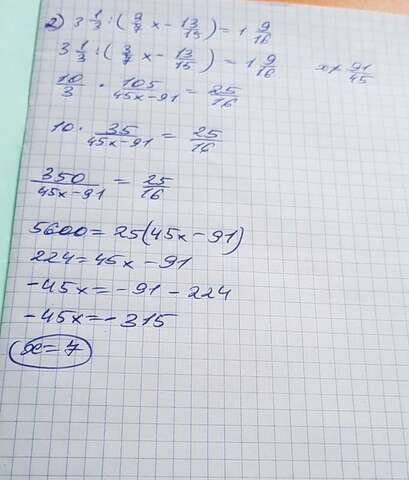 2) 3 1/3 : (3/7 x - 13/15) = 1 9/16
3 1/3 : (3/7 x - 13/15) = 1 9/16 x ≠ 91/45
10/3 · 105/45x-91 = 25/16
10 · 35/45x-91 = 25/16
350/45x-91 = 25/16
5600 = 25(45x-91)
224 = 45x - 91
-45x = -91 - 224
-45x = -315
x = 7